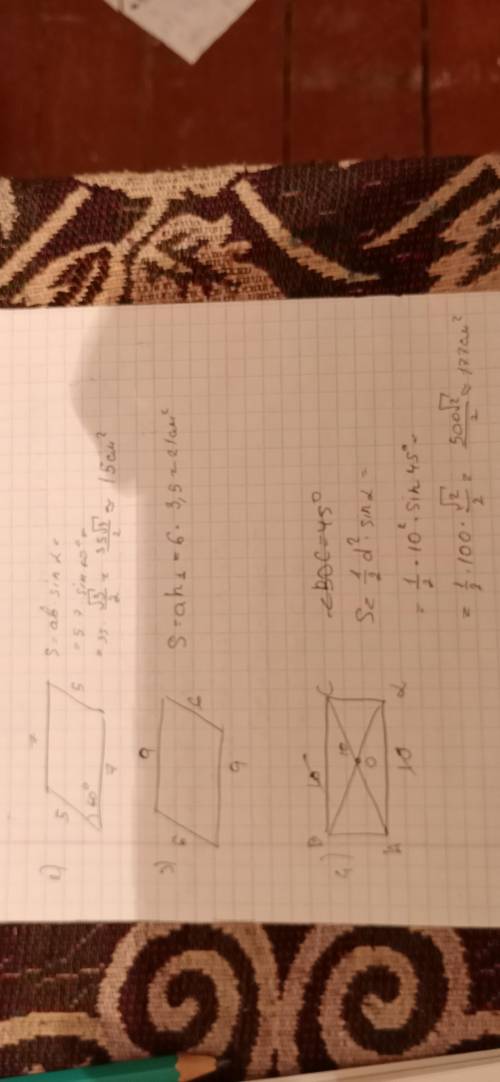 2)
7
5
5
60°
7
S = ab sin α =
= 5 · 7 · sin 60° =
= 35 · √3/2 = 35√3/2 ≈ 15 см²
3)
9
6
6
9
S = ah₂ = 6 · 3,5 = 21 см²
4)
B
C
10
10
O
10
∠BOC = 45°
S = 1/2 d² · sin α =
= 1/2 · 10² · sin 45° =
= 1/2 · 100 · √2/2 = 500√2/2 ≈ 177 см²